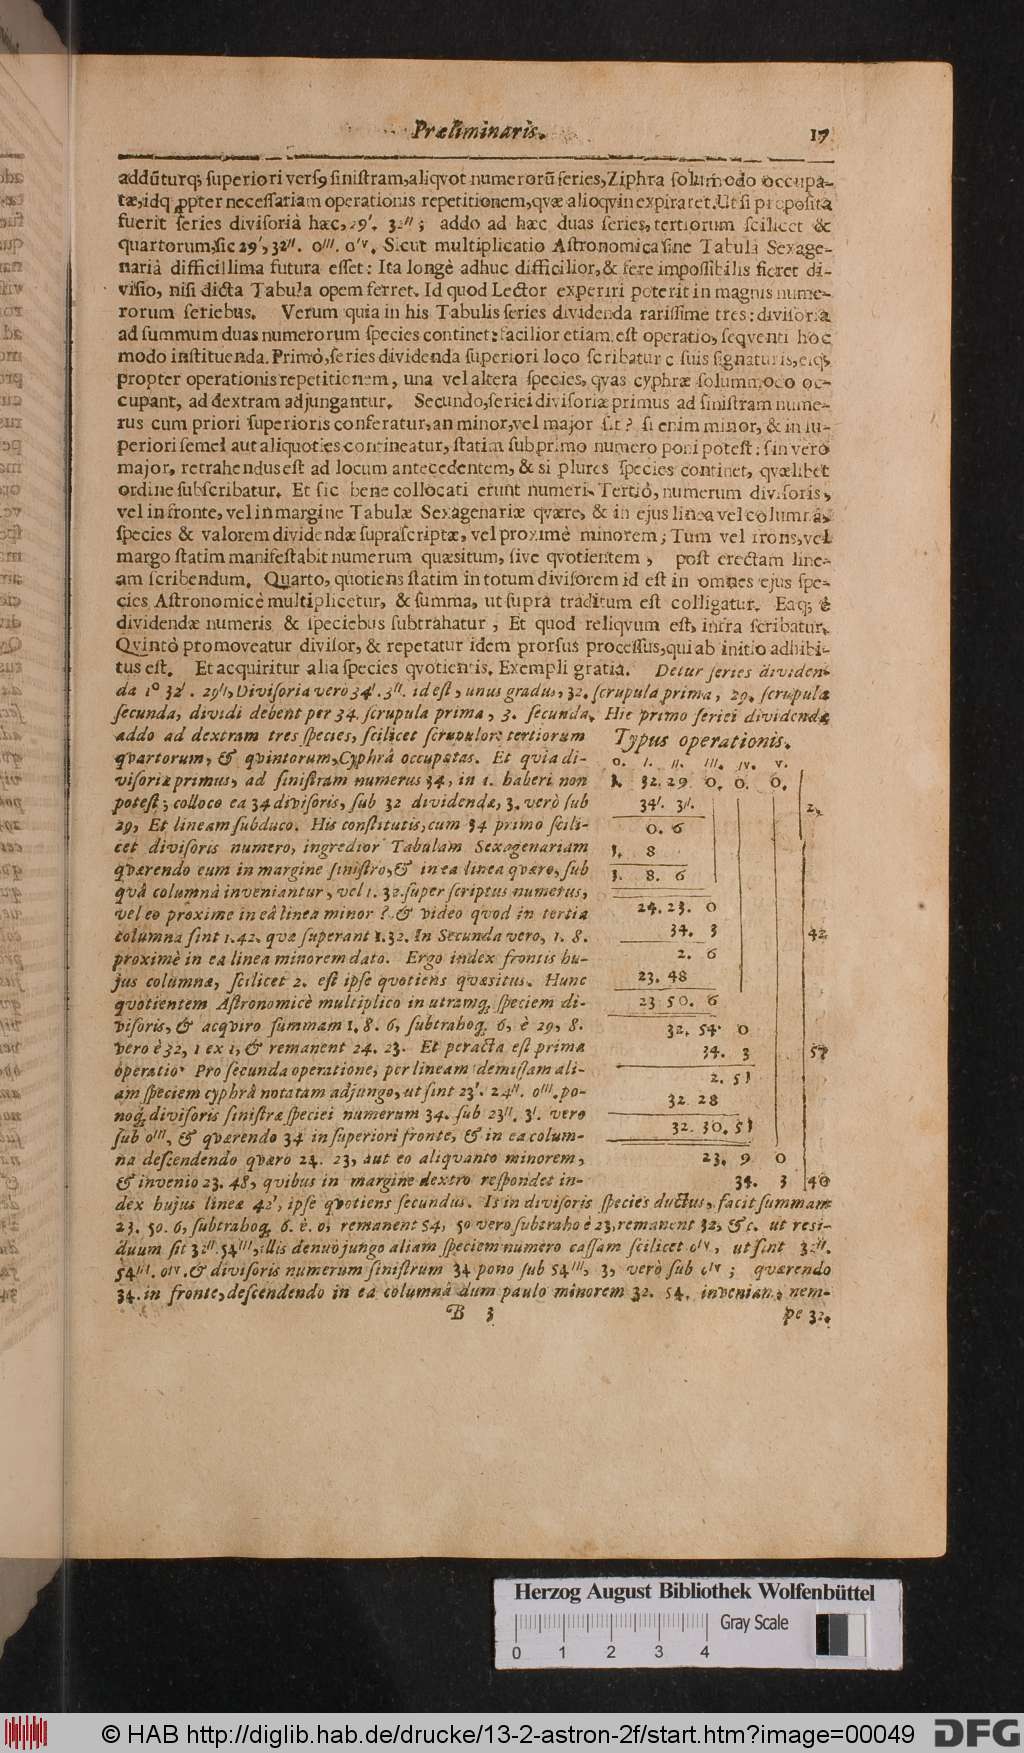 Præliminaris. 17
addūturq; superiori versꝰ sinistram, aliqvot numerorū series, Ziphra solum̄odo occupa-
tæ, idq ꝓpter necessariam operationis repetitionem, qvæ alioqvin expiraret. Ut si proposita
fuerit series divisoria hæc, 29′. 32″; addo ad hæc duas series, tertiorum scilicet &
quartorum, sic 29′, 32″. 0‴. 0′ᵛ. Sicut multiplicatio Astronomica sine Tabulâ Sexage-
nariâ difficillima futura esset: Ita longè adhuc difficilior, & fere impossibilis fieret di-
visio, nisi dicta Tabula opem ferret. Id quod Lector experiri poterit in magnis nume-
rorum seriebus. Verum quia in his Tabulis series dividenda rarissime tres: divisoria
ad summum duas numerorum species continet: facilior etiam est operatio, seqventi hoc
modo instituenda. Primò, series dividenda superiori loco scribatur c suis signaturis, eiq;
propter operationis repetitionem, una vel altera species, qvas cyphræ solummoco oc-
cupant, ad dextram adjungantur. Secundo, seriei divisoriæ primus ad sinistram nume-
rus cum priori superioris conferatur, an minor, vel major sit? si enim minor, & in su-
periori semel aut aliquoties contineatur, statim sub primo numero poni potest: sin verò
major, retrahendus est ad locum antecedentem, & si plures species continet, qvælibet
ordine subscribatur. Et sic bene collocati erunt numeri. Tertiò, numerum divisoris,
vel in fronte, vel in margine Tabulæ Sexagenariæ qvære, & in ejus linea vel columnâ,
species & valorem dividendæ suprascriptæ, vel proximè minorem; Tum vel frons, vel
margo statim manifestabit numerum quæsitum, sive qvotientem, post erectam line-
am scribendum. Quarto, quotiens statim in totum divisorem id est in omnes ejus spe-
cies Astronomicè multiplicetur, & summa, ut suprà traditum est colligatur. Eaq; è
dividendæ numeris & speciebus subtrahatur; Et quod reliqvum est, infra scribatur.
Qvintò promoveatur divisor, & repetatur idem prorsus processus, qui ab initio adhibi-
tus est. Et acquiritur alia species qvotientis. Exempli gratia. Detur series dividen-
da 1° 32′. 29″, Divisoria vero 34′. 3″. id est, unus gradus, 32. scrupula prima, 29. scrupula
secunda, dividi debent per 34. scrupula prima, 3. secunda. Hic primo seriei dividendæ
addo ad dextram tres species, scilicet scrupulorū tertiorum
qvartorum, & qvintorum, Cyphrâ occupatas. Et qvia di-
visoriæ primus, ad sinistram numerus 34, in 1. haberi non
potest; colloco ea 34 divisoris, sub 32 dividendæ, 3. verò sub
29, Et lineam subduco. His constitutis, cum 34 primo scili-
cet divisoris numero, ingredior Tabulam Sexagenariam
qværendo eum in margine sinistro, & in ea linea qværo, sub
quâ columnâ inveniantur, vel 1. 32. super scriptus numerus,
vel eo proxime in eâ linea minor? & video qvod in tertia
columna sint 1. 42. quæ superant 1. 32. In Secunda vero, 1. 8.
proximè in ea linea minorem dato. Ergo index frontis hu-
jus columnæ, scilicet 2. est ipse quotiens quæsitus. Hunc
quotientem Astronomicè multiplico in utramq; speciem di-
visoris, & acqviro summam 1. 8. 6, subtrahoq; 6, è 29, 8.
vero è 32, 1 ex 1, & remanent 24. 23. Et peracta est prima
operatio. Pro secunda operatione, per lineam demissam ali-
am speciem cyphrâ notatam adjungo, ut sint 23′. 24″. 0‴. po-
noq; divisoris sinistræ speciei numerum 34. sub 23″. 3′. vero
sub 0‴, & qværendo 34 in superiori fronte, & in ea colum-
na descendendo qværo 24. 23, aut eo aliquanto minorem,
& invenio 23. 48, quibus in margine dextro respondet in-
Typus operationis.
0. I. II. III. IV. V.
1. 32. 29 0. 0. 0.
34′. 3″. 2,
0. 6
1. 8
1. 8. 6
24. 23. 0
34. 3 42
2. 6
23. 48
23 50. 6
32. 54. 0
34. 3 57
2. 51
32 28
32. 30. 51
23. 9 0
34. 3 40
dex hujus lineæ 42′, ipse qvotiens secundus. Is in divisoris species ductus, facit summam
23. 50. 6, subtrahoq; 6. è. 0, remanent 54, 50 vero subtraho è 23, remanent 32, &c. ut resi-
duum sit 32″. 54‴, illis denuo jungo aliam speciem numero cassam scilicet 0ᴵⱽ, ut sint 32″.
54‴. 0ᴵⱽ. & divisoris numerum sinistrum 34 pono sub 54‴, 3, verò sub 0ᴵⱽ; quærendo
34. in fronte, descendendo in ea columnâ dum paulo minorem 32. 54. inveniam, nem-
B 3 pe 32.
Herzog August Bibliothek Wolfenbüttel
Gray Scale
0 1 2 3 4
© HAB http://diglib.hab.de/drucke/13-2-astron-2f/start.htm?image=00049
DFG